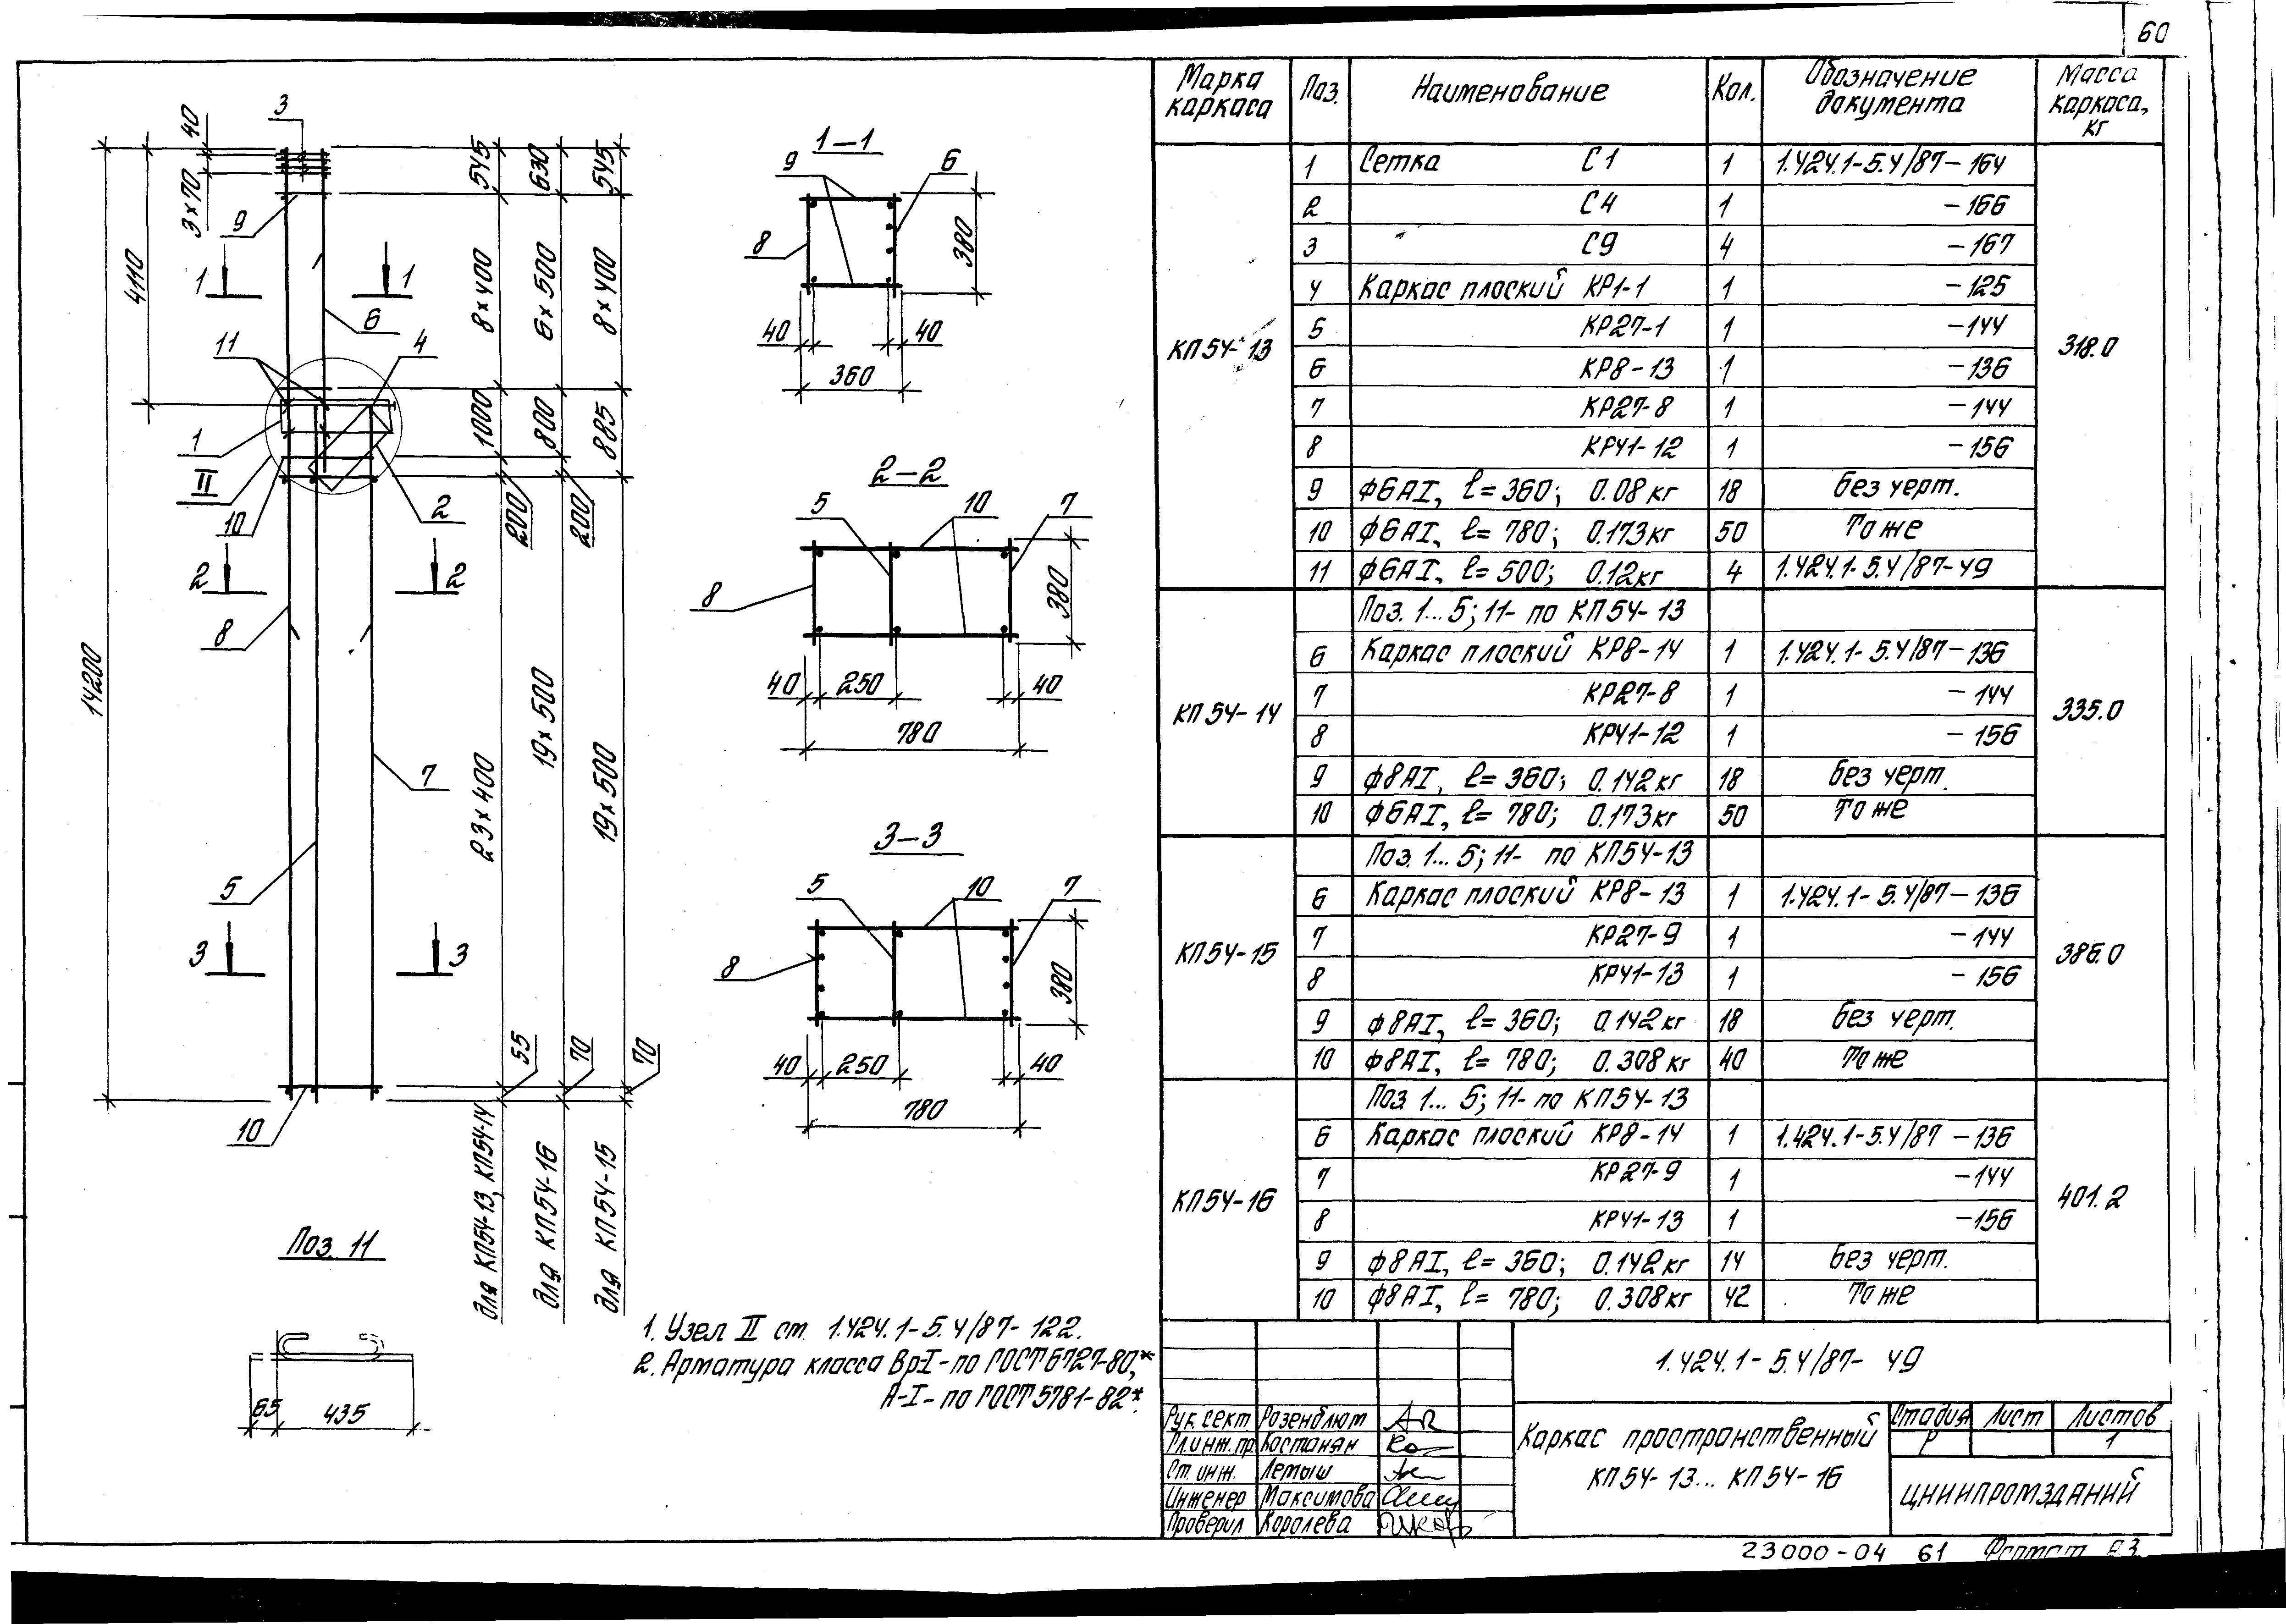 60
Марка каркаса Поз. Наименование Кол. Обозначение документа Масса каркаса, кг
КП54-13 318.0
1 Сетка С1 1 1.424.1-5.4/87-164
2 С4 1 -166
3 " С9 4 -167
4 Каркас плоский КР1-1 1 -125
5 КР27-1 1 -144
6 КР8-13 1 -136
7 КР27-8 1 -144
8 КР41-12 1 -156
9 ф6АI, ℓ=360; 0.08кг 18 Без черт.
10 ф6АI, ℓ=780; 0.173кг 50 То же
11 ф6АI, ℓ=500; 0.12кг 4 1.424.1-5.4/87-49
КП54-14 335.0
Поз. 1...5; 11- по КП54-13
6 Каркас плоский КР8-14 1 1.424.1-5.4/87-136
7 КР27-8 1 -144
8 КР41-12 1 -156
9 ф8АI, ℓ=360; 0.142кг 18 Без черт.
10 ф6АI, ℓ=780; 0.173кг 50 То же
КП54-15 386.0
Поз. 1...5; 11- по КП54-13
6 Каркас плоский КР8-13 1 1.424.1-5.4/87-136
7 КР27-9 1 -144
8 КР41-13 1 -156
9 ф8АI, ℓ=360; 0.142кг 18 Без черт.
10 ф8АI, ℓ=780; 0.308кг 40 То же
КП54-16 401.2
Поз 1...5; 11- по КП54-13
6 Каркас плоский КР8-14 1 1.424.1-5.4/87-136
7 КР27-9 1 -144
8 КР41-13 1 -156
9 ф8АI, ℓ=360; 0.142кг 14 Без черт.
10 ф8АI, ℓ=780; 0.308кг 42 То же
3
40
3х70
9
4110
14200
1 1
6
11 4
1
II
10
2
2 2
8
7
5
3 3
10
545 630 545
8х400 6х500 8х400
1000 800 885
200 200
23х400 19х500 19х500
55 70 70
для КП54-13, КП54-14
для КП54-16
для КП54-15
1-1
9 6
8
380
40 40
360
2-2
5 10 7
8
380
40 250 40
780
3-3
5 10 7
8
380
40 250 40
780
Поз. 11
65 435
1. Узел II см. 1.424.1-5.4/87-122.
2. Арматура класса ВрI-по ГОСТ6727-80,*
А-I-по ГОСТ5781-82*.
1.424.1-5.4/87-49
Рук. сект Розенблюм
Гл.инж.пр. Костанян
Ст. инж. Лемыш
Инженер Максимова
Проверил Королева
Каркас пространственный
КП54-13...КП54-16
Стадия Лист Листов
Р 1
ЦНИИПРОМЗДАНИЙ
23000-04 61 Формат А3